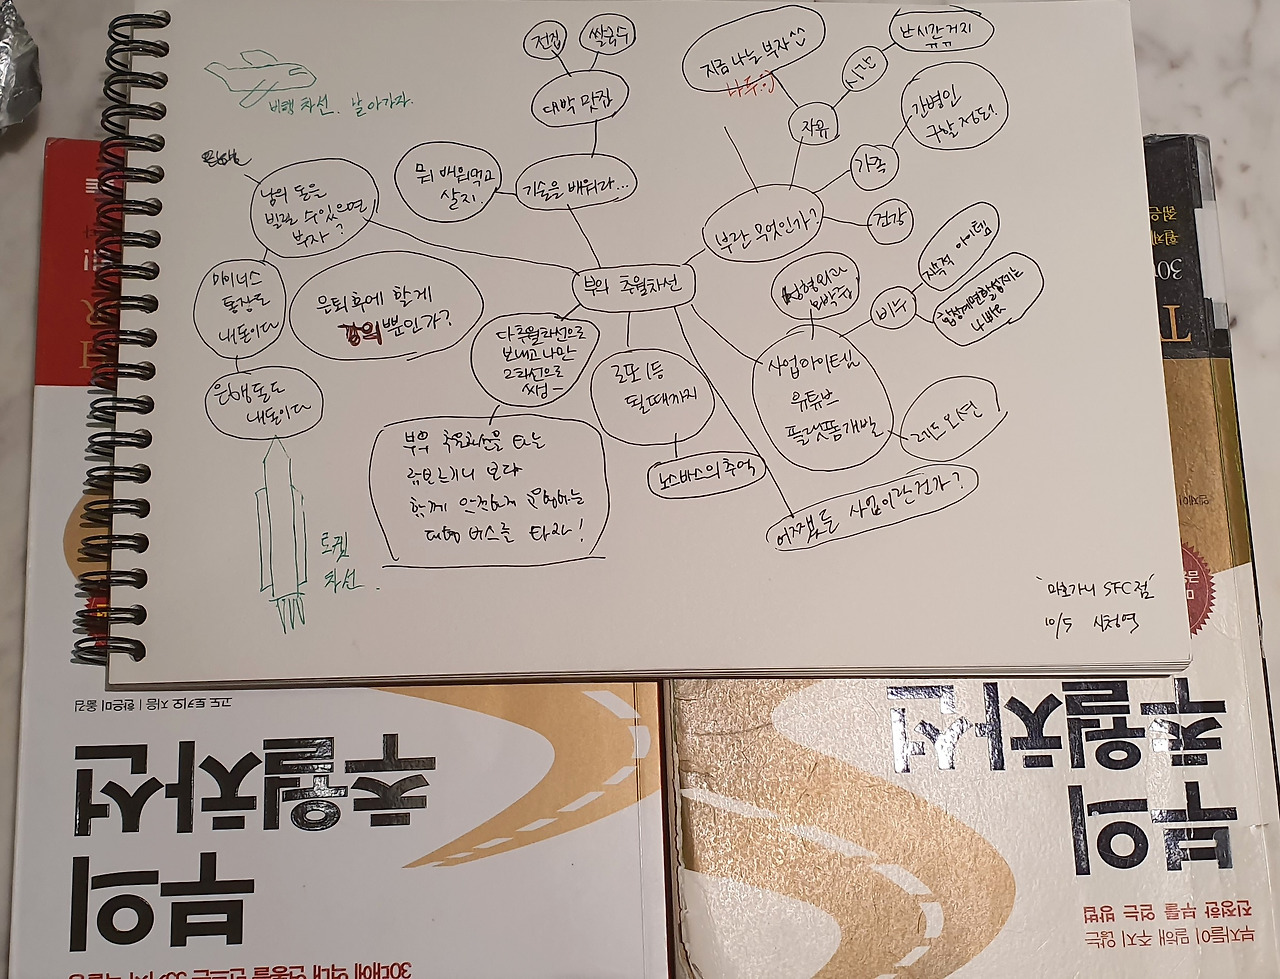 전집
쌀국수
대박 맛집
지금 나는 부자 ^^
나두잉
난 시간 거지
ㅠㅠ
시간
자유
간병인
구할 정도!
가족
건강
부란 무엇인가?
비행 차선. 날아가자.
남의 돈을
빌릴 수 있으면
부자?
뭐 배워먹고
살지.
기술을 배워라...
마이너스
통장도
내돈이다
은행돈도
내돈이다
은퇴 후에 할게
강의 뿐인가?
부의 추월차선
다 추월차선으로
보내고 나만
2차선으로
쌩~
로또 1등
될때까지
노스바스의 추억
성형외과
비누
지속적 아이템
합성계면활성제는
나빠요
사업아이템
유튜브
플랫폼 개발
레드오션?
어쨌든 사업이란건가?
부의 추월차선을 타는
람보르기니 보다
함께 안전하게 운행하는
대형 버스를 타라!
로켓
차선.
'마호가니 SFC점'
10/5 신청역
고도 토키오 지음 | 한은미 옮김
부의
추월차선
부의
추월차선
부자들이 말해 주지 않는
진정한 부를 얻는 방법